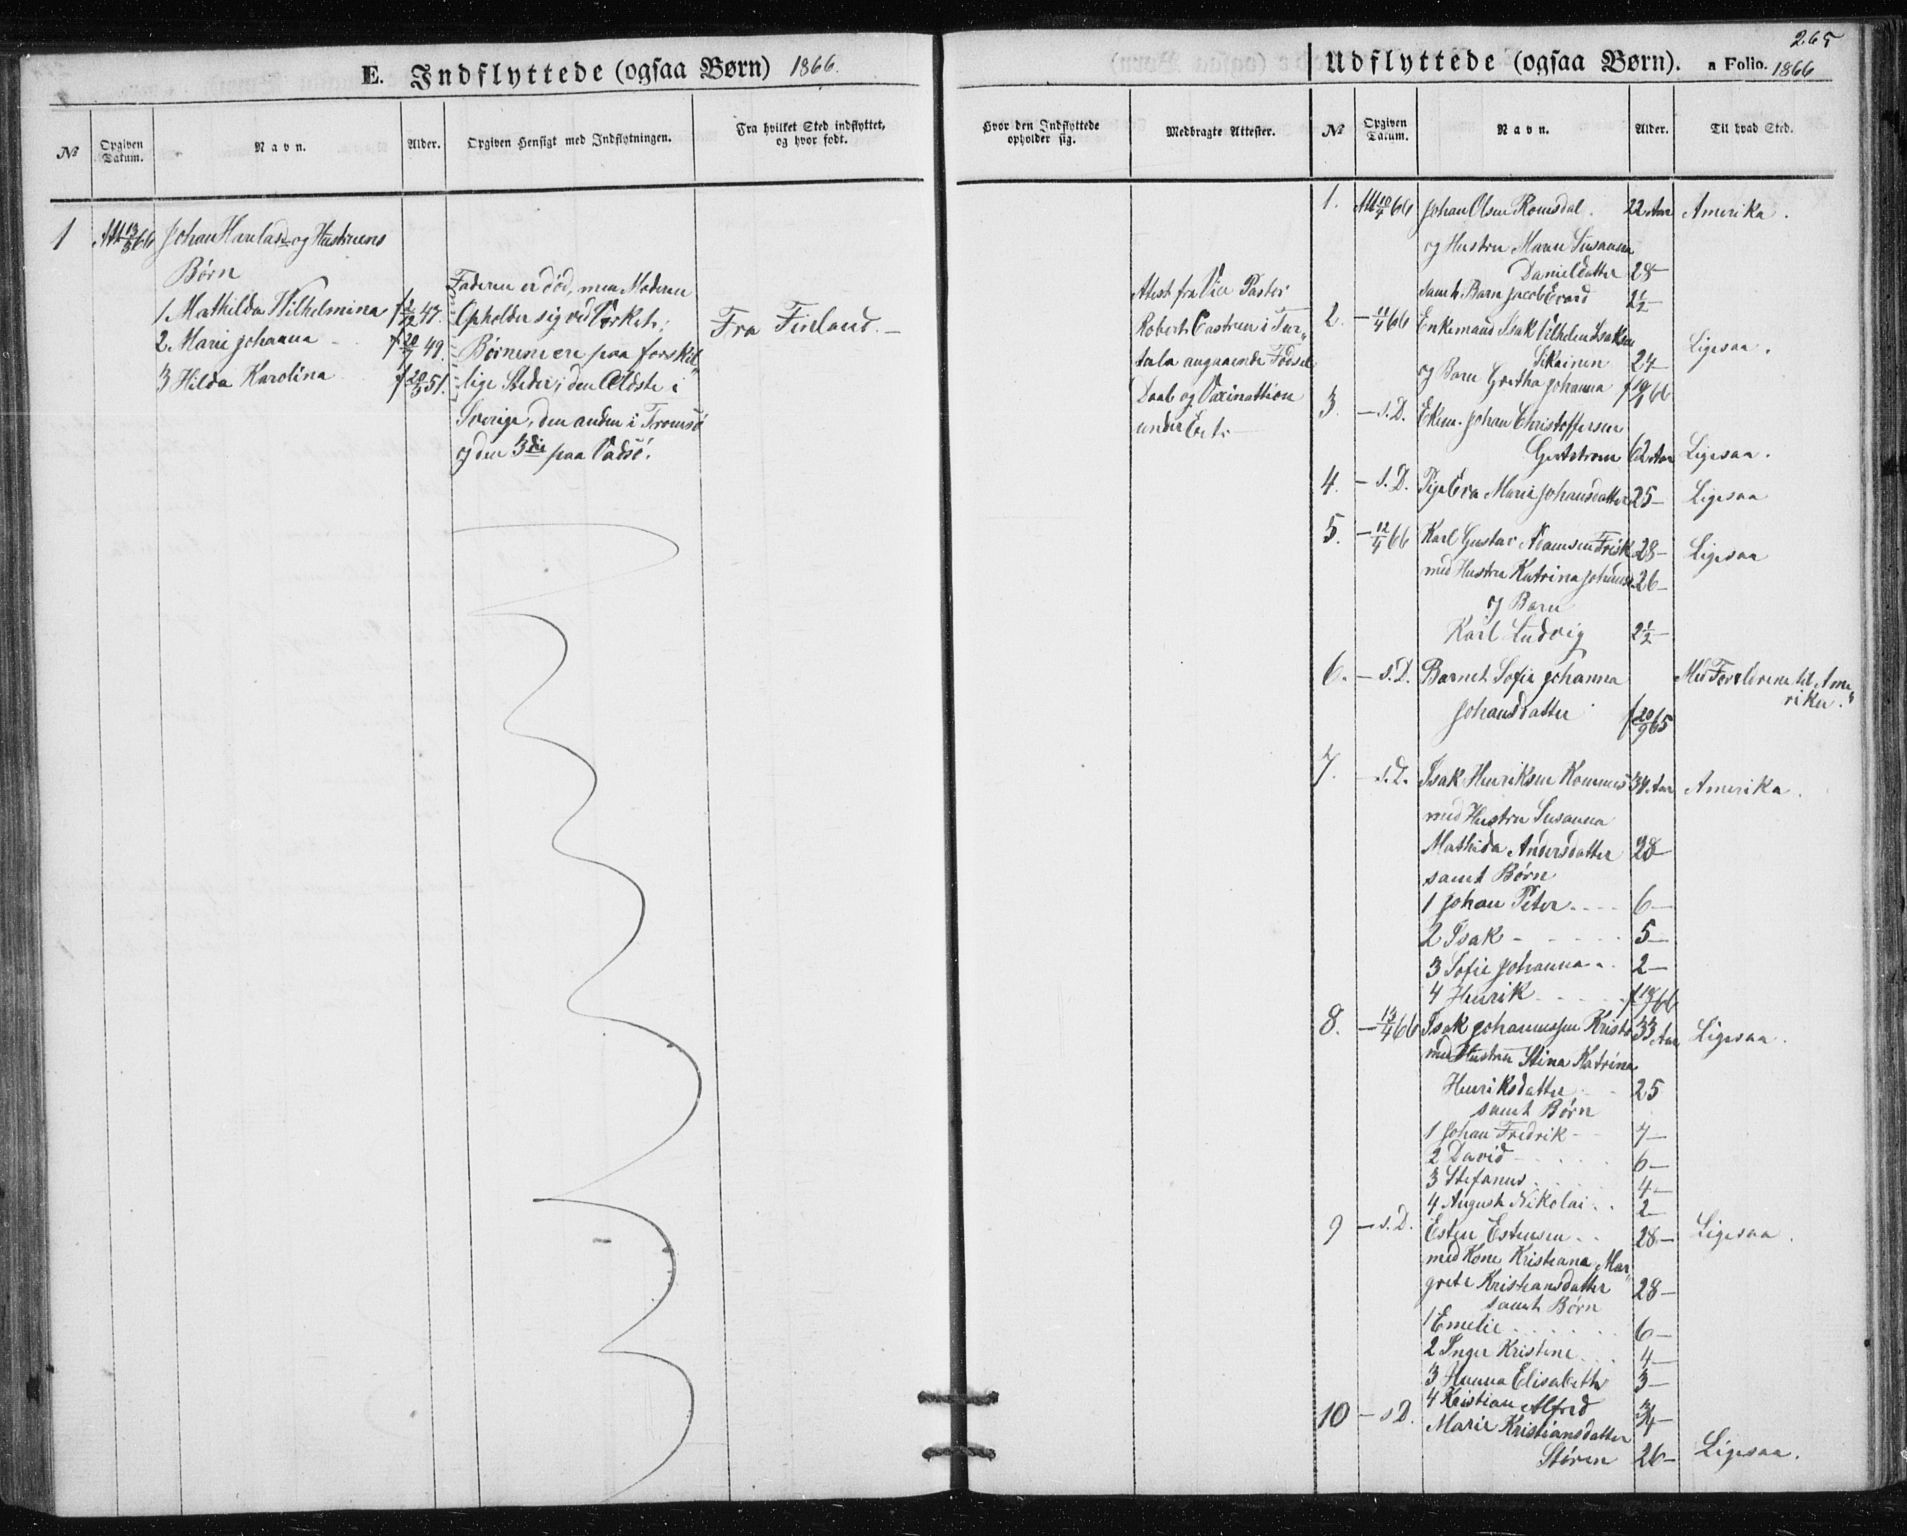 265
E. Indflyttede (ogsaa Børn) 1866.
No
Opgiven Datum.
Navn.
Alder.
Opgiven Hensigt med Indflytningen.
Fra hvilket Sted indflyttet, og hvor født.
1 Att 13/3 66 Johan og Hustruens
Børn
1 Mathilda Wilhelmina f 47.
2 Maria Johanna f 20/7 49.
3 Hilda Karolina f 20/3 51.
Faderen er død, men Moderen
Opholder sig ved Værket;
Børnene ere paa forskjel„
lige Steder, den Ældste i
Sverige, den anden i Tromsö
og den 3die paa Vadsö.
Fra Finland. —
Udflyttede (ogsaa Børn). a Folio. 1866
Hvor den Indflyttede opholder sig.
Medbragte Attester.
No
Opgiven Datum.
Navn.
Alder.
Til hvad Sted.
Attest fra Vice Pastor
Robert Castren i Tur„
tula angaaende Födsel
Daab og Vaxination
under
1. Att 10/4 66 Johan Olsen Romsdal. 22 Aar Amerika.
og Hustru Maren Susanna
Danielsdatter 28 —
samt Barn Jacob 2 1/2
2. — 11/4 66 Enkemand Isak Vilhelm Isaksen
Sikainen 24 — Ligesaa.
og Barn Gretha Johanna f 66
3. — s. D. Ekem. Johan Christoffersen
62 Aar Ligesaa.
4. — s. D. Pige Eva Maria Johansdatter 25 — Ligesaa
5. — 12/4 66 Karl Gustav Adamsen Frisk 28 — Ligesaa
med Hustru Katrina 26 —
og Barn
Karl Ludvig 2 1/2 —
6. — s. D. Barnet Sofie Johanna Med Forældrene til Ame„
Johansdatter f 20/9 65 rika.
7. — s. D. Isak Henriksen 34 Aar Amerika.
med Hustru Susanna
Mathida Andersdatter 28 —
samt Børn
1 Johan Peter 6 —
2 Isak 5 —
3 Sofie Johanna 2 —
4 Henrik f 66
8. — 13/4 66 Isak Johannessen 33 Aar Ligesaa.
med Hustru Stina Katrina
Henriksdatter 25
samt Børn
1 Johan Fredrik 7 —
2 David 6 —
3 Stefanus 4 —
4 August Nikolai 2 —
9 — s. D. Esten Estensen 28 — Ligesaa.
med Kone Kristiana Mar„
grete Kristiansdatter 28 —
samt Børn
1 Emelie 6 —
2 Inger Kristine 4 —
3 Hanna Elisabeth 3 —
4 Kristian Alfred 3/4 —
10 — s D. Marie Kristiansdatter
Stören 26 — Ligesaa.